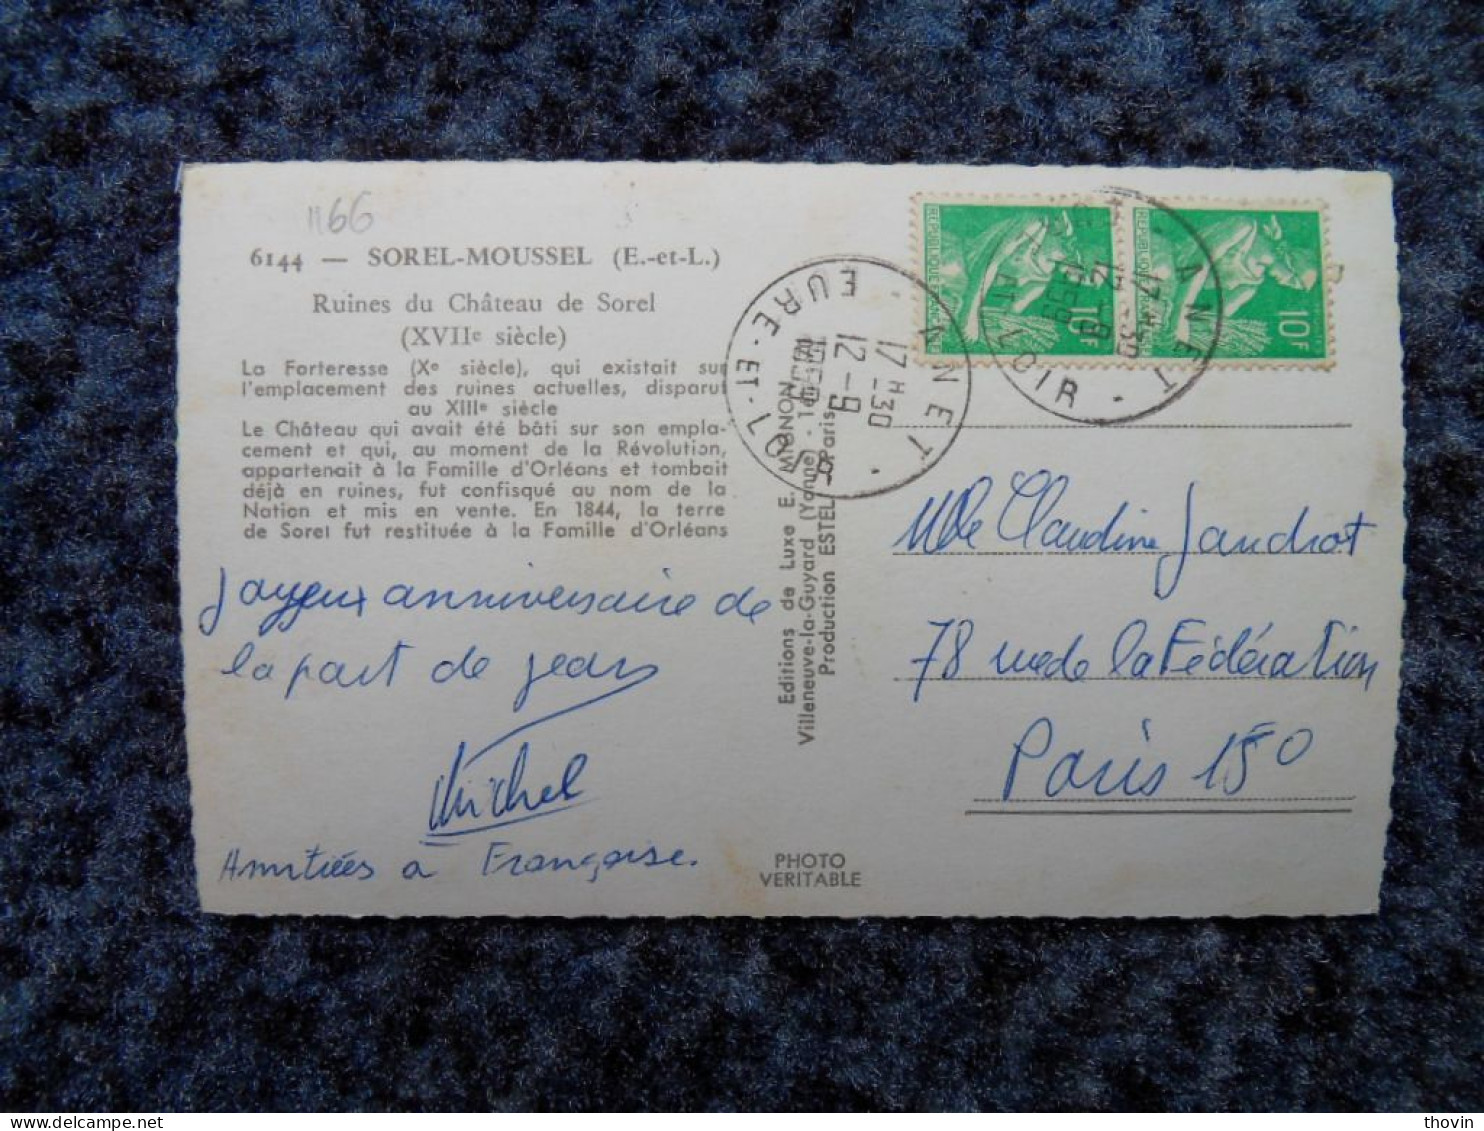 1166
6144 — SOREL-MOUSSEL (E.-et-L.)
Ruines du Château de Sorel
(XVIIe siècle)
La Forteresse (Xe siècle), qui existait sur
l'emplacement des ruines actuelles, disparut
au XIIIe siècle
Le Château qui avait été bâti sur son empla-
cement et qui, au moment de la Révolution,
appartenait à la Famille d'Orléans et tombait
déjà en ruines, fut confisqué au nom de la
Nation et mis en vente. En 1844, la terre
de Sorel fut restituée à la Famille d'Orléans
Joyeux anniversaire de
la part de Jean
Michel
Amitiés à Françoise.
Editions de Luxe E. MIGNON
Villeneuve-la-Guyard (Yonne) - Tél.
Production ESTEL Paris
PHOTO
VERITABLE
ANNET
17 H 30
12 - 9
EURE-ET-LOIR
REPUBLIQUE
10F
REPUBLIQUE
10F
ANET
17 H 30
12 - 9
1959
EURE-ET-LOIR
Mlle Claudine Jandrot
78 rue de la Fédération
Paris 15°
thovin